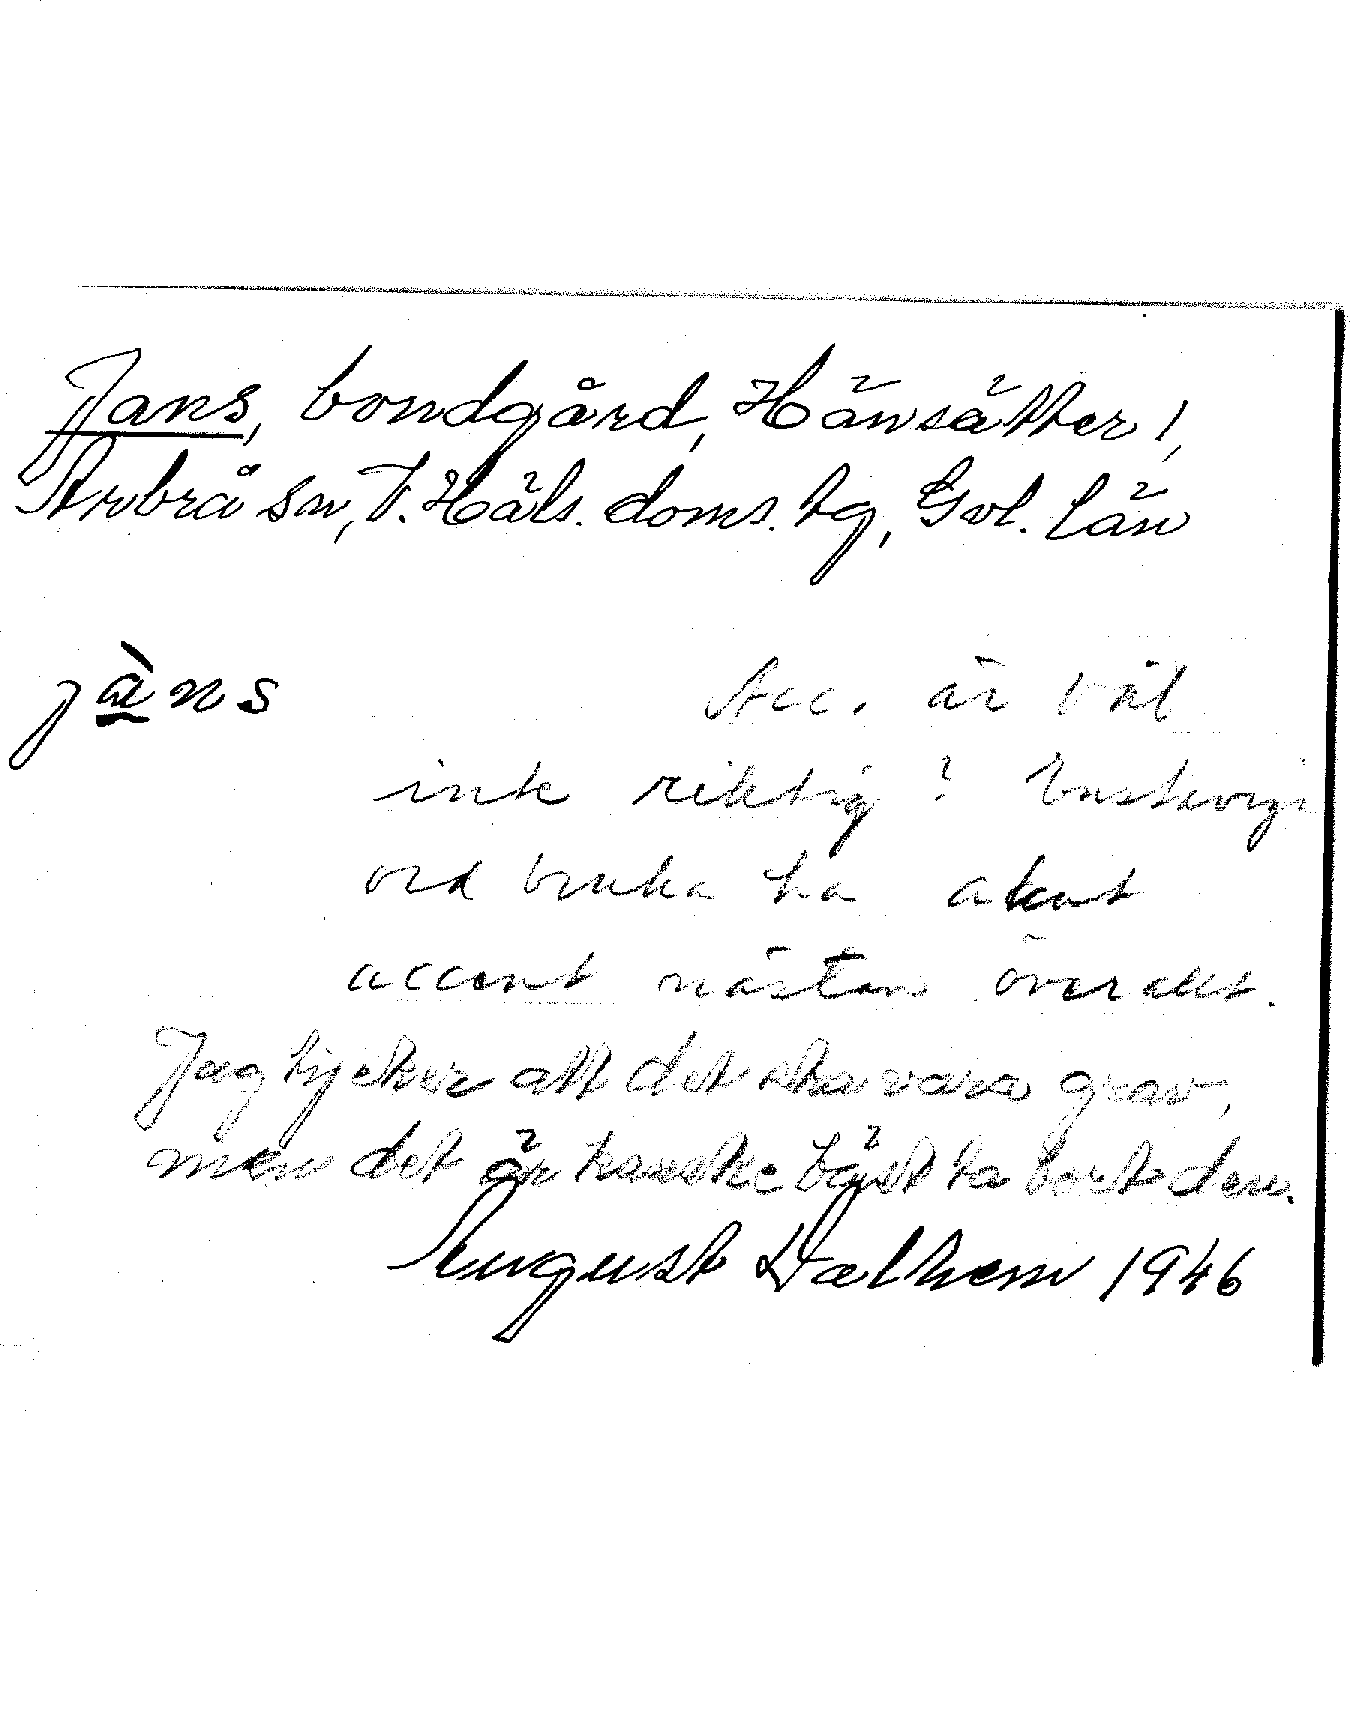 Jans, bondgård, Hänsätter 1,
Arbrå sn, V. Häls. doms. tg, Gvl. län
jàns
Acc. är väl
inte riktig? Enstaviga
ord bruka ha akut
accent nästan överallt.
Jag tycker att det ska vara grav,
men det är kanske bäst ta bort den.
August Dalhem 1946